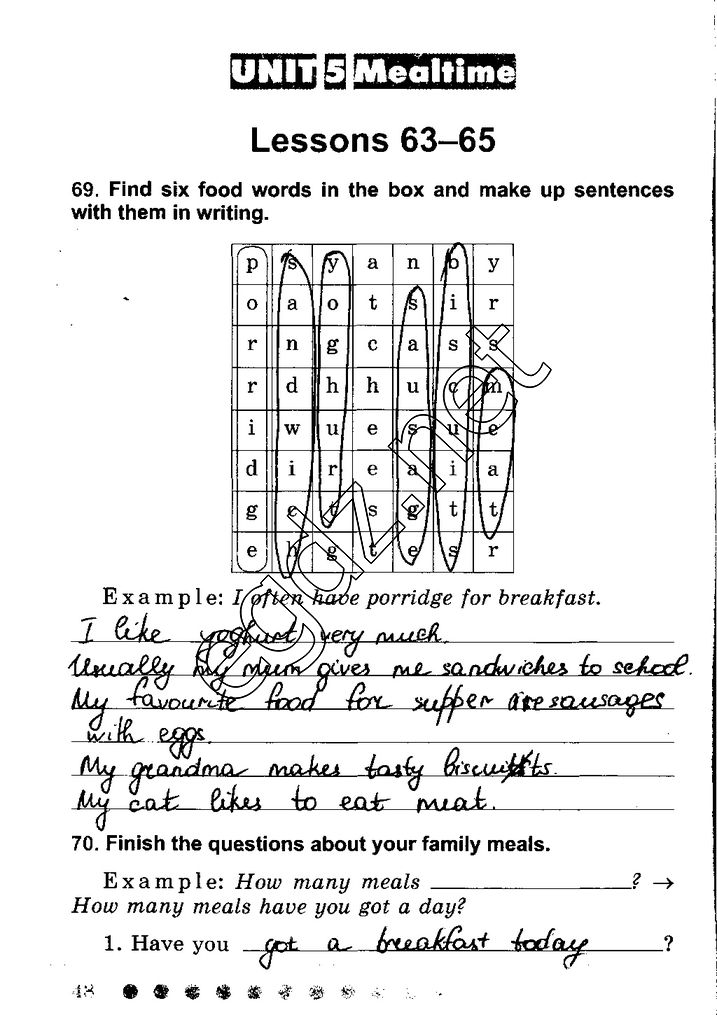 UNIT 5 Mealtime
Lessons 63–65
69. Find six food words in the box and make up sentences
with them in writing.
p s y a n b y
o a o t s i r
r n g c a s s
r d h h u c m
i w u e s u e
d i r e a i a
g c t s g t t
e h g t e s r
Example: I often have porridge for breakfast.
I like yoghurt very much.
Usually my mum gives me sandwiches to school.
My favourite food for supper are sausages
with eggs.
My grandma makes tasty biscuits.
My cat likes to eat meat.
70. Finish the questions about your family meals.
Example: How many meals ? →
How many meals have you got a day?
1. Have you got a breakfast today ?
48
gdz.net